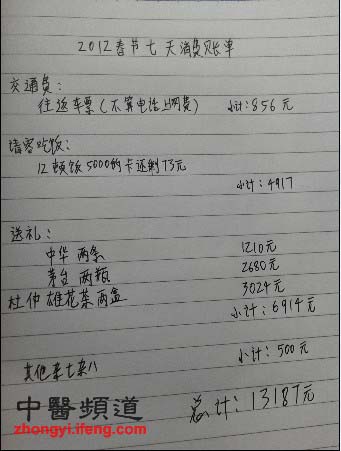 2012春节七天消费账单
交通费:
往返车票(不算电话上网费) 小计:856元
请客吃饭:
12顿饭5000的卡还剩73元
小计:4917
送礼:
中华 两条 1210元
茅台 两瓶 2680元
杜仲雄花茶两盒 3024元
小计:6914元
其他杂七杂八 小计:500元
总计:13187元
中醫頻道
zhongyi.ifeng.com